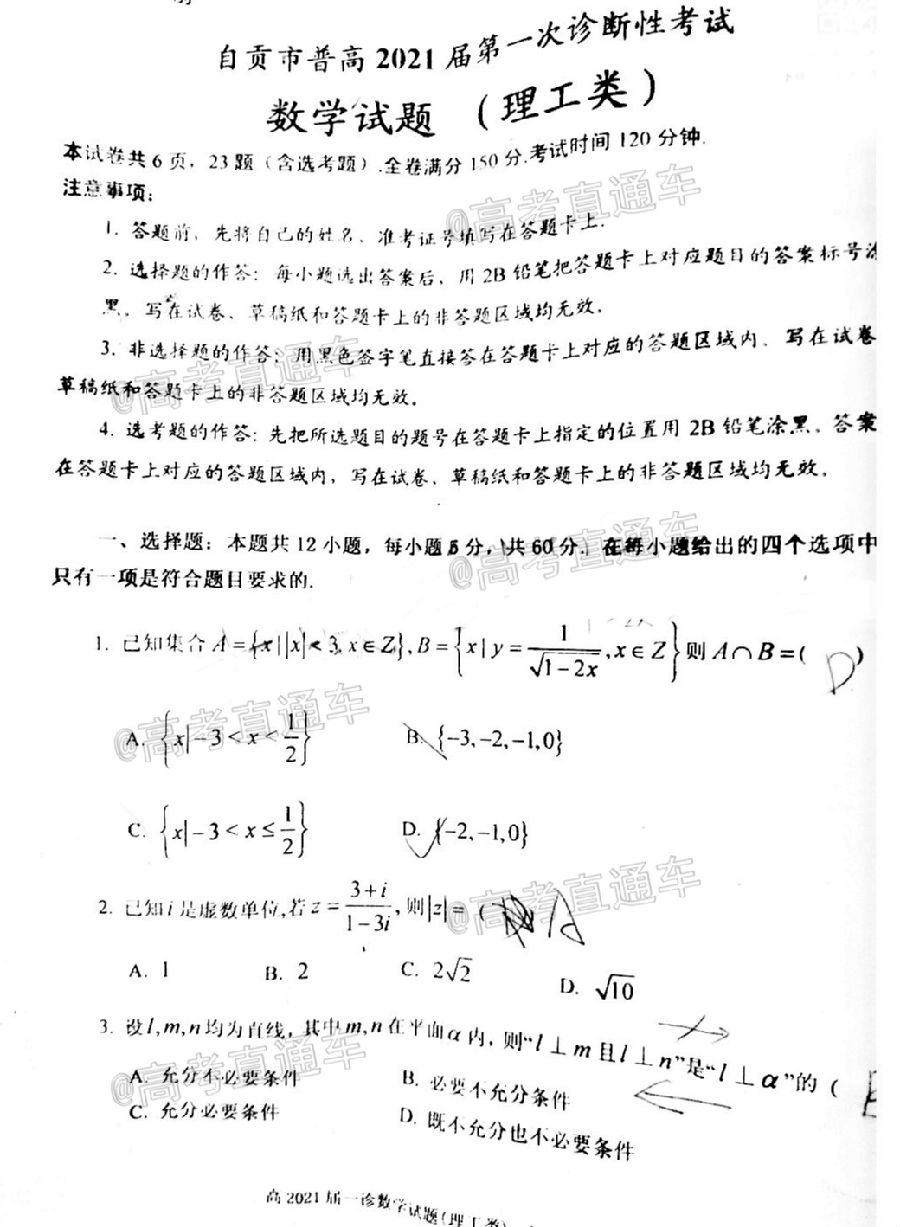 自贡市普高2021届第一次诊断性考试
数学试题 （理工类）
本试卷共6页，23题（含选考题）.全卷满分150分.考试时间120分钟.
注意事项：
1. 答题前，先将自己的姓名、准考证号填写在答题卡上.
2. 选择题的作答：每小题选出答案后，用2B铅笔把答题卡上对应题目的答案标号涂
黑，写在试卷、草稿纸和答题卡上的非答题区域均无效。
3. 非选择题的作答：用黑色签字笔直接答在答题卡上对应的答题区域内、写在试卷
草稿纸和答题卡上的非答题区域均无效。
4. 选考题的作答：先把所选题目的题号在答题卡上指定的位置用2B铅笔涂黑。答案
在答题卡上对应的答题区域内，写在试卷、草稿纸和答题卡上的非答题区域均无效。
一、选择题：本题共12小题，每小题5分，共60分．在每小题给出的四个选项中
只有一项是符合题目要求的.
1. 已知集合A={x||x|<3,x∈Z},B={x|y=1/√(1-2x),x∈Z}则A∩B=( D )
A. {x|-3<x<1/2} B. {-3,-2,-1,0}
C. {x|-3<x≤1/2} D. {-2,-1,0}
2. 已知i是虚数单位,若z=(3+i)/(1-3i),则|z|= ( A
A. 1 B. 2 C. 2√2 D. √10
3. 设l,m,n均为直线，其中m,n在平面α内，则“l⊥m且l⊥n”是“l⊥α”的（
A. 充分不必要条件 B. 必要不充分条件
C. 充分必要条件 D. 既不充分也不必要条件
高2021届一诊数学试题(理工类)
@高考直通车
@高考直通车
@高考直通车
@高考直通车
@高考直通车
@高考直通车